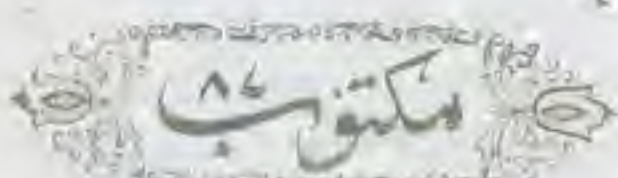 مکتوب ۸۷